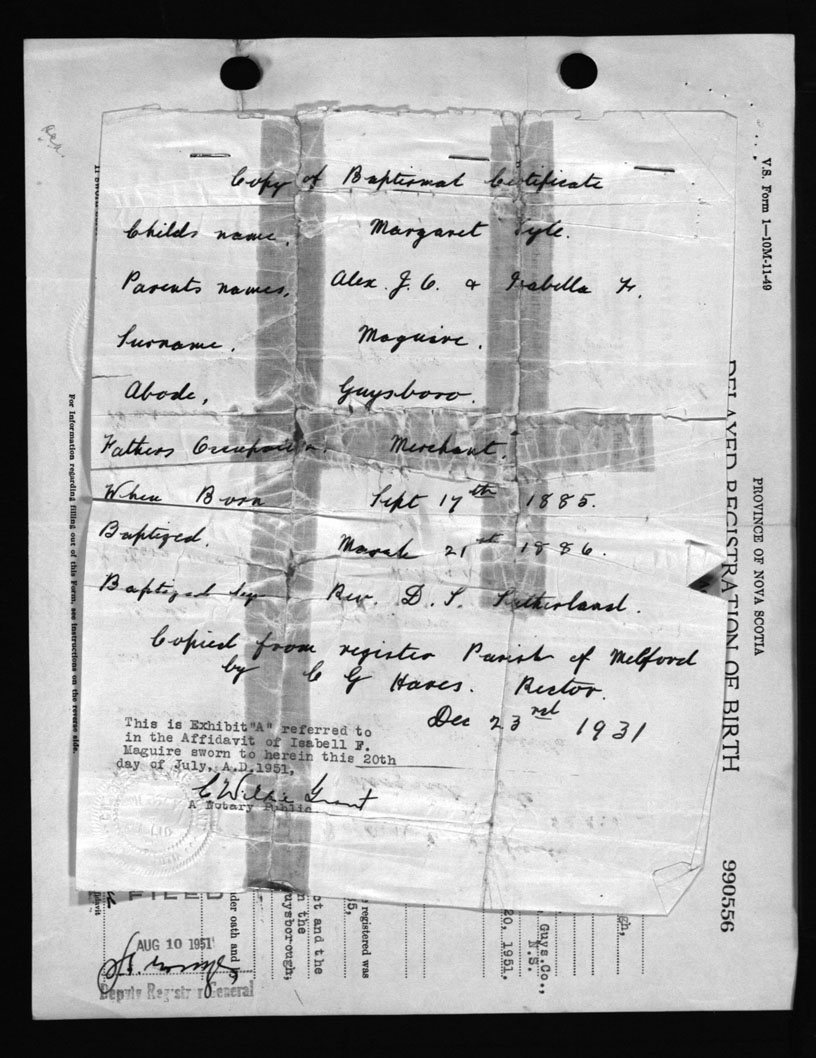 Copy of Baptismal Certificate
Childs name. Margaret Lyle.
Parents names. Alex. J. C. & Isabella F.
Surname. Maguire.
Abode, Guysboro.
Fathers Occupation. Merchant.
When Born Sept 17th 1885.
Baptized. March 21st 1886.
Baptized by Rev. D. S. Sutherland.
Copied from register Parish of Melford
by C G Hares. Rector.
Dec 23rd 1931
This is Exhibit "A" referred to
in the Affidavit of Isabell F.
Maguire sworn to herein this 20th
day of July, A.D.1951,
C Wilkie Grant
A Notary Public
FILED
AUG 10 1951
Deputy Registrar General
V.S. Form 1—10M-11-49
PROVINCE OF NOVA SCOTIA
DELAYED REGISTRATION OF BIRTH
990556
For information regarding filling out of this Form, see instructions on the reverse side.
gh,
Guys.Co.,
N.S.
20, 1951.
registered was
35,
ct and the
n the
uysborough,
der oath and